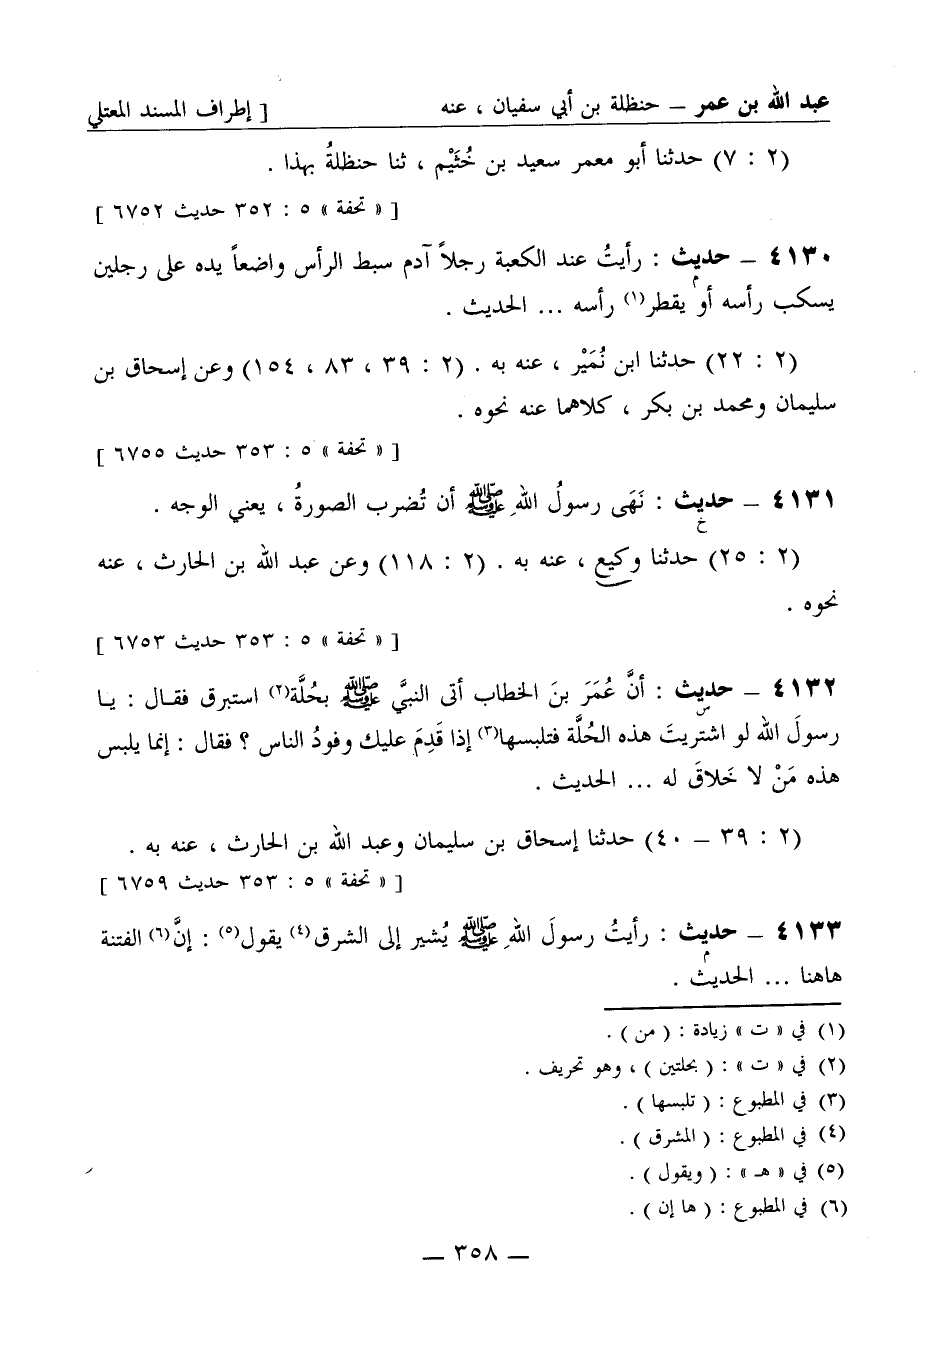 عبد الله بن عمر – حنظلة بن أبي سفيان ، عنه [ إطراف المسند المعتلي
(٢ : ٧) حدثنا أبو معمر سعيد بن خُثَيْم ، ثنا حنظلةُ بهذا .
[ « تحفة » ٥ : ٣٥٢ حديث ٦٧٥٢ ]
٤١٣٠ – حديث : رأيتُ عند الكعبة رجلاً آدم سبط الرأس واضعاً يده على رجلين
م
يسكب رأسه أو يقطر(١) رأسه ... الحديث .
(٢ : ٢٢) حدثنا ابن نُمَيْر ، عنه به . (٢ : ٣٩ ، ٨٣ ، ١٥٤) وعن إسحاق بن
سليمان ومحمد بن بكر ، كلاهما عنه نحوه .
[ « تحفة » ٥ : ٣٥٣ حديث ٦٧٥٥ ]
٤١٣١ – حديث : نَهَى رسولُ اللهِ ﷺ أن تُضرب الصورةُ ، يعني الوجه .
خ
(٢ : ٢٥) حدثنا وكيع ، عنه به . (٢ : ١١٨) وعن عبد الله بن الحارث ، عنه
نحوه .
[ « تحفة » ٥ : ٣٥٣ حديث ٦٧٥٣ ]
٤١٣٢ – حديث : أنَّ عُمَرَ بنَ الخطاب أتى النبيَّ ﷺ بحُلَّة(٢) استبرق فقال : يا
س
رسولَ الله لو اشتريتَ هذه الحُلَّة فتلبسها(٣) إذا قَدِمَ عليك وفودُ الناس ؟ فقال : إنما يلبس
هذه مَنْ لا خَلاقَ له ... الحديث .
(٢ : ٣٩ – ٤٠) حدثنا إسحاق بن سليمان وعبد الله بن الحارث ، عنه به .
[ « تحفة » ٥ : ٣٥٣ حديث ٦٧٥٩ ]
٤١٣٣ – حديث : رأيتُ رسولَ اللهِ ﷺ يُشير إلى الشرق(٤) يقول(٥) : إنَّ(٦) الفتنة
م
هاهنا ... الحديث .
(١) في « ت » زيادة : ( من ) .
(٢) في « ت » : ( بحلتين ) ، وهو تحريف .
(٣) في المطبوع : ( تلبسها ) .
(٤) في المطبوع : ( المشرق ) .
(٥) في « هـ » : ( ويقول ) .
(٦) في المطبوع : ( ها إن ) .
– ٣٥٨ –